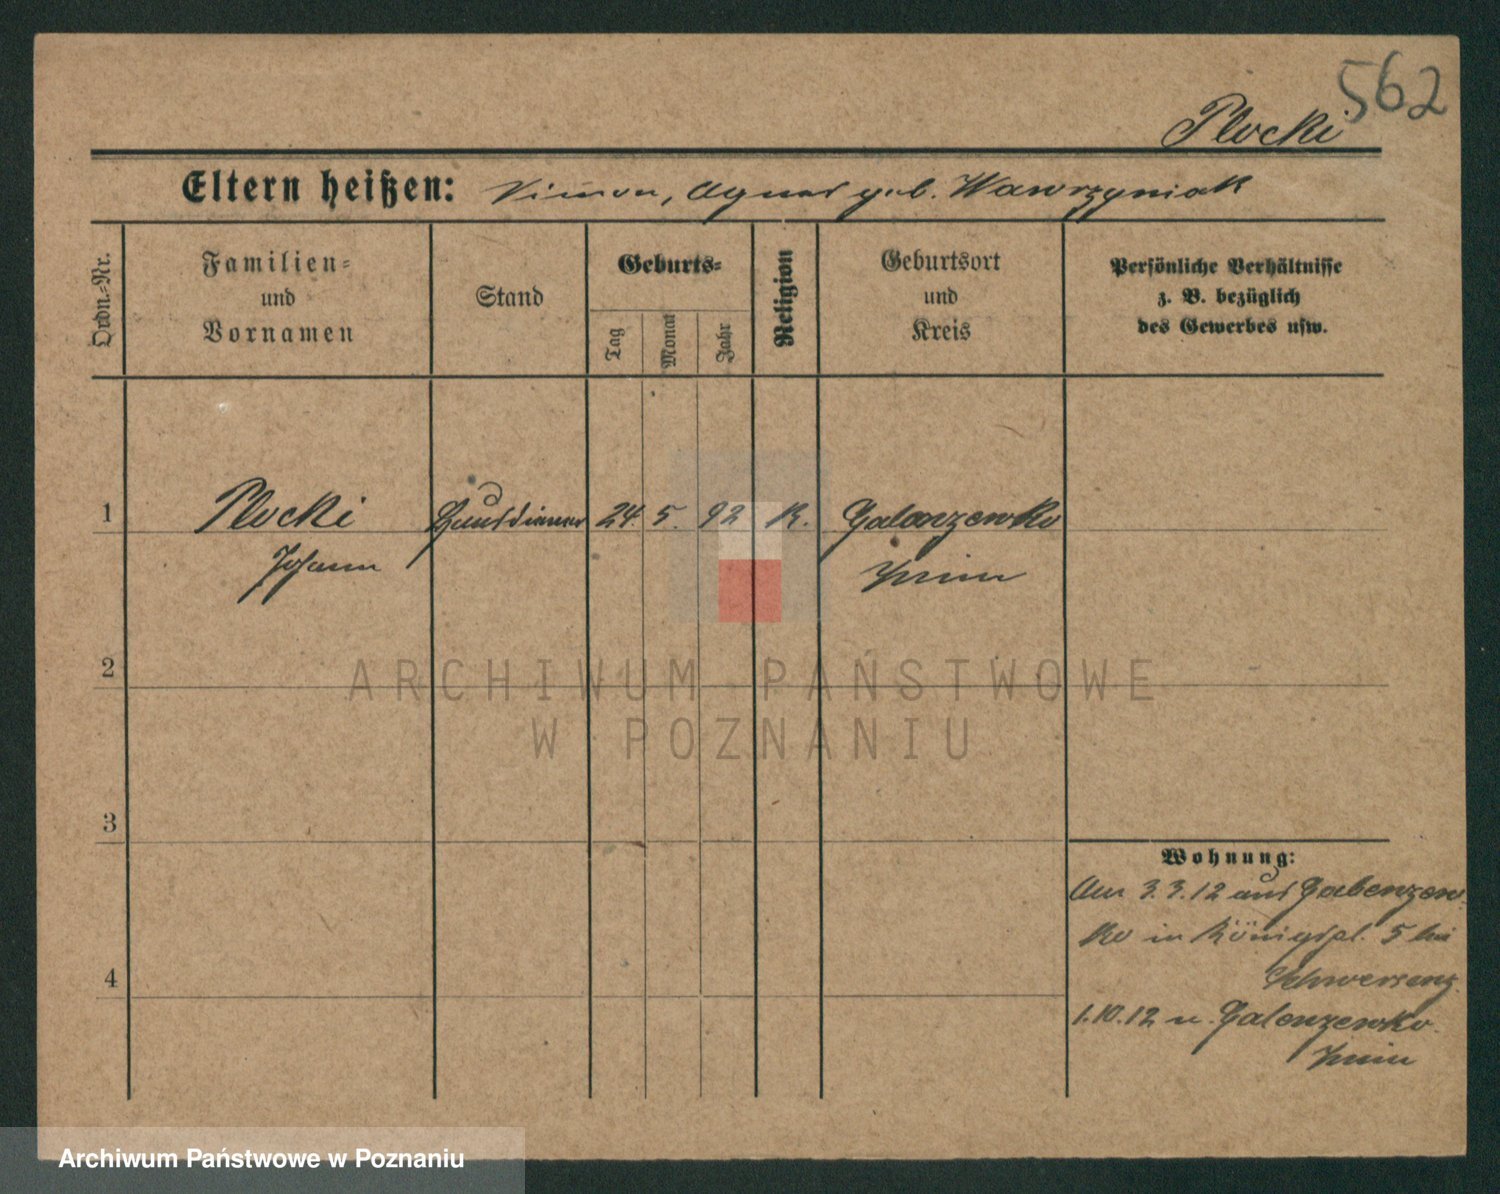 562
Plocki
Eltern heißen: Simon, Agnes geb. Wawrzyniak
Ordn.-Nr.
Familien-
und
Vornamen
Stand
Geburts-
Tag
Monat
Jahr
Religion
Geburtsort
und
Kreis
Persönliche Verhältnisse
z. B. bezüglich
des Gewerbes usw.
1 Plocki Hausdiener 24. 5. 92 K.
Johann Znin
2
ARCHIWUM PAŃSTWOWE
W POZNANIU
3
Wohnung:
Am 3.3.12 aus
ko in Königspl. 5 bei
4
Schwersenz.
1.10.12 n.
Znin
Archiwum Państwowe w Poznaniu